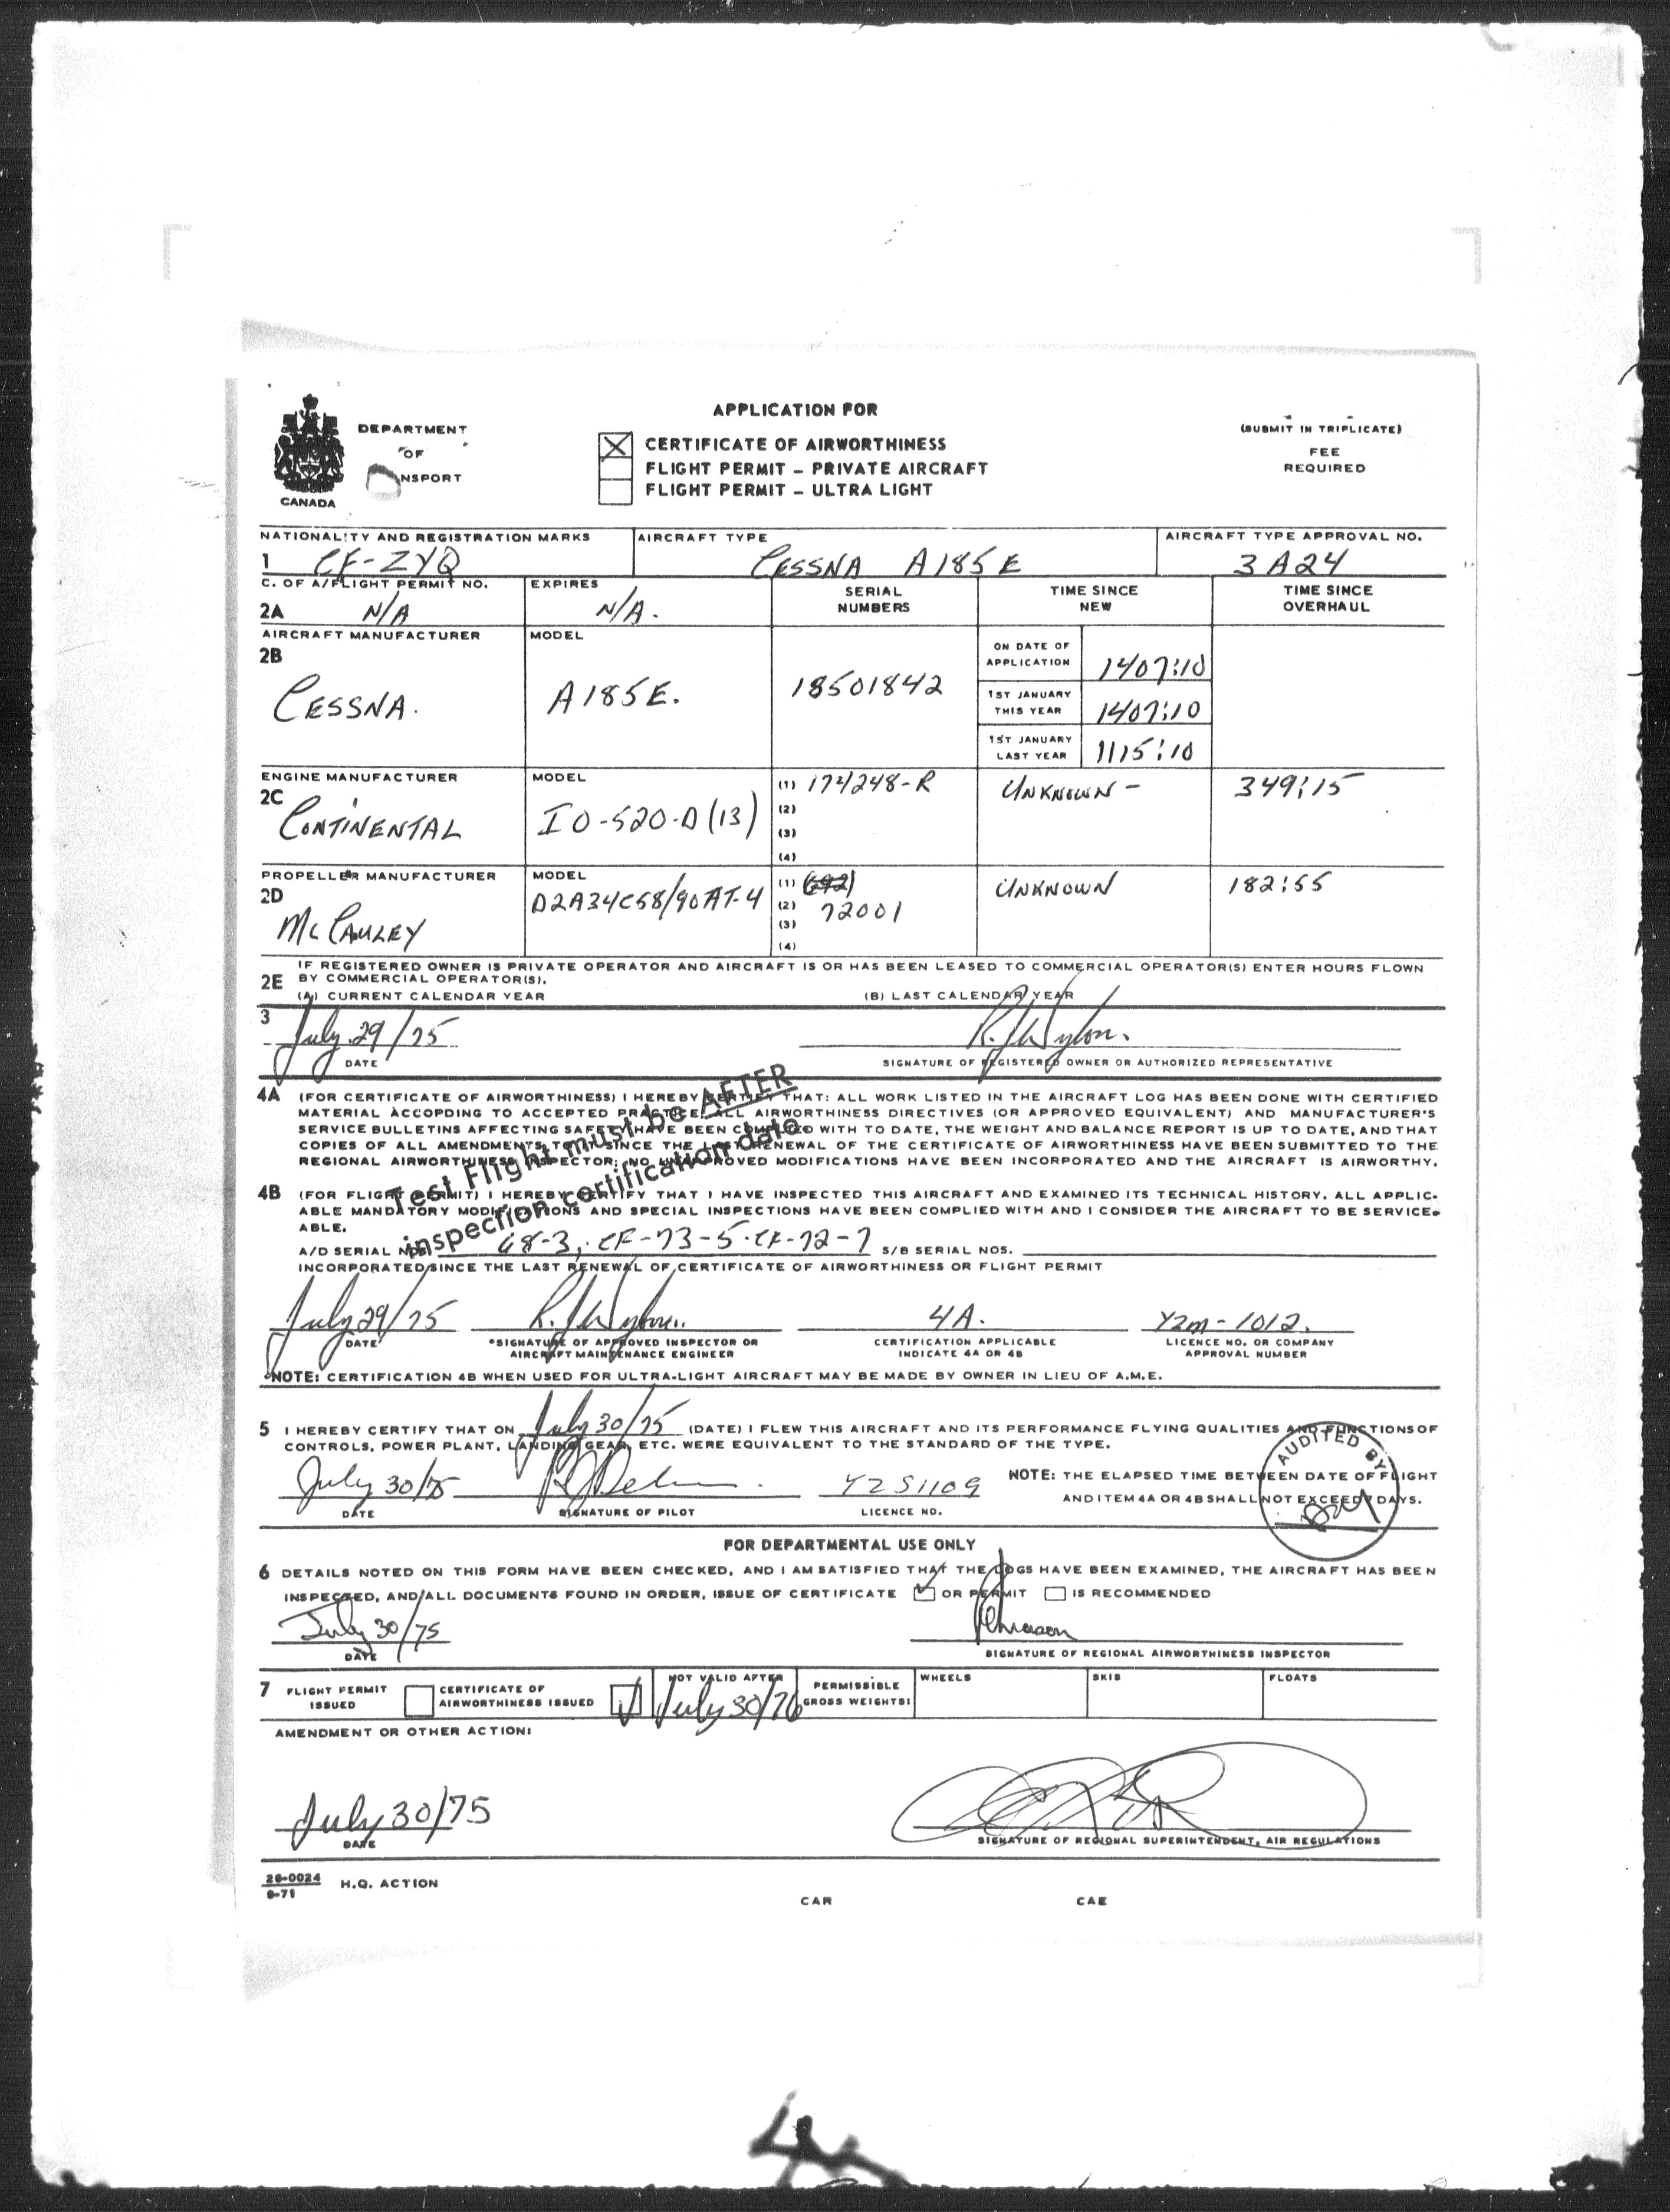 APPLICATION FOR
DEPARTMENT
OF
NSPORT
CANADA
CERTIFICATE OF AIRWORTHINESS
FLIGHT PERMIT – PRIVATE AIRCRAFT
FLIGHT PERMIT – ULTRA LIGHT
(SUBMIT IN TRIPLICATE)
FEE
REQUIRED
NATIONALITY AND REGISTRATION MARKS AIRCRAFT TYPE AIRCRAFT TYPE APPROVAL NO.
1 CF-ZYQ CESSNA A185E 3A24
C. OF A/FLIGHT PERMIT NO. EXPIRES SERIAL NUMBERS TIME SINCE NEW TIME SINCE OVERHAUL
2A N/A N/A.
AIRCRAFT MANUFACTURER MODEL
2B
CESSNA. A185E. 18501842
ON DATE OF APPLICATION 1407:10
1ST JANUARY THIS YEAR 1407:10
1ST JANUARY LAST YEAR 1115:10
ENGINE MANUFACTURER MODEL (1) 174248-R UNKNOWN - 349:15
2C CONTINENTAL IO-520-D (13) (2)
(3)
(4)
PROPELLER MANUFACTURER MODEL (1) UNKNOWN 182:55
2D D2A34C58/90AT-4 (2) 72001
McCAULEY (3)
(4)
2E IF REGISTERED OWNER IS PRIVATE OPERATOR AND AIRCRAFT IS OR HAS BEEN LEASED TO COMMERCIAL OPERATOR(S) ENTER HOURS FLOWN
BY COMMERCIAL OPERATOR(S).
(A) CURRENT CALENDAR YEAR (B) LAST CALENDAR YEAR
3 July 29/75
DATE SIGNATURE OF REGISTERED OWNER OR AUTHORIZED REPRESENTATIVE
4A (FOR CERTIFICATE OF AIRWORTHINESS) I HEREBY CERTIFY THAT: ALL WORK LISTED IN THE AIRCRAFT LOG HAS BEEN DONE WITH CERTIFIED
MATERIAL ACCORDING TO ACCEPTED PRACTICE, ALL AIRWORTHINESS DIRECTIVES (OR APPROVED EQUIVALENT) AND MANUFACTURER'S
SERVICE BULLETINS AFFECTING SAFETY HAVE BEEN COMPLIED WITH TO DATE, THE WEIGHT AND BALANCE REPORT IS UP TO DATE, AND THAT
COPIES OF ALL AMENDMENTS TO IT SINCE THE LAST RENEWAL OF THE CERTIFICATE OF AIRWORTHINESS HAVE BEEN SUBMITTED TO THE
REGIONAL AIRWORTHINESS INSPECTOR; NO UNAPPROVED MODIFICATIONS HAVE BEEN INCORPORATED AND THE AIRCRAFT IS AIRWORTHY.
Test Flight must be AFTER
inspection certification date
4B (FOR FLIGHT PERMIT) I HEREBY CERTIFY THAT I HAVE INSPECTED THIS AIRCRAFT AND EXAMINED ITS TECHNICAL HISTORY. ALL APPLIC-
ABLE MANDATORY MODIFICATIONS AND SPECIAL INSPECTIONS HAVE BEEN COMPLIED WITH AND I CONSIDER THE AIRCRAFT TO BE SERVICE-
ABLE.
A/D SERIAL NOS. 68-3, CF-73-5. CF-72-7 S/B SERIAL NOS.
INCORPORATED SINCE THE LAST RENEWAL OF CERTIFICATE OF AIRWORTHINESS OR FLIGHT PERMIT
July 29/75 4A. YZM-1012.
DATE *SIGNATURE OF APPROVED INSPECTOR OR AIRCRAFT MAINTENANCE ENGINEER CERTIFICATION APPLICABLE INDICATE 4A OR 4B LICENCE NO. OR COMPANY APPROVAL NUMBER
*NOTE: CERTIFICATION 4B WHEN USED FOR ULTRA-LIGHT AIRCRAFT MAY BE MADE BY OWNER IN LIEU OF A.M.E.
5 I HEREBY CERTIFY THAT ON July 30/75 (DATE) I FLEW THIS AIRCRAFT AND ITS PERFORMANCE FLYING QUALITIES AND FUNCTIONS OF
CONTROLS, POWER PLANT, LANDING GEAR, ETC. WERE EQUIVALENT TO THE STANDARD OF THE TYPE.
July 30/75 YZS1109
DATE SIGNATURE OF PILOT LICENCE NO.
NOTE: THE ELAPSED TIME BETWEEN DATE OF FLIGHT
AND ITEM 4A OR 4B SHALL NOT EXCEED 7 DAYS.
AUDITED BY
FOR DEPARTMENTAL USE ONLY
6 DETAILS NOTED ON THIS FORM HAVE BEEN CHECKED, AND I AM SATISFIED THAT THE LOGS HAVE BEEN EXAMINED, THE AIRCRAFT HAS BEEN
INSPECTED, AND ALL DOCUMENTS FOUND IN ORDER, ISSUE OF CERTIFICATE OR PERMIT IS RECOMMENDED
July 30/75
DATE SIGNATURE OF REGIONAL AIRWORTHINESS INSPECTOR
7 FLIGHT PERMIT ISSUED CERTIFICATE OF AIRWORTHINESS ISSUED NOT VALID AFTER July 30/76 PERMISSIBLE GROSS WEIGHTS: WHEELS SKIS FLOATS
AMENDMENT OR OTHER ACTION:
July 30/75
DATE SIGNATURE OF REGIONAL SUPERINTENDENT, AIR REGULATIONS
26-0024
8-71
H.Q. ACTION
CAR CAE